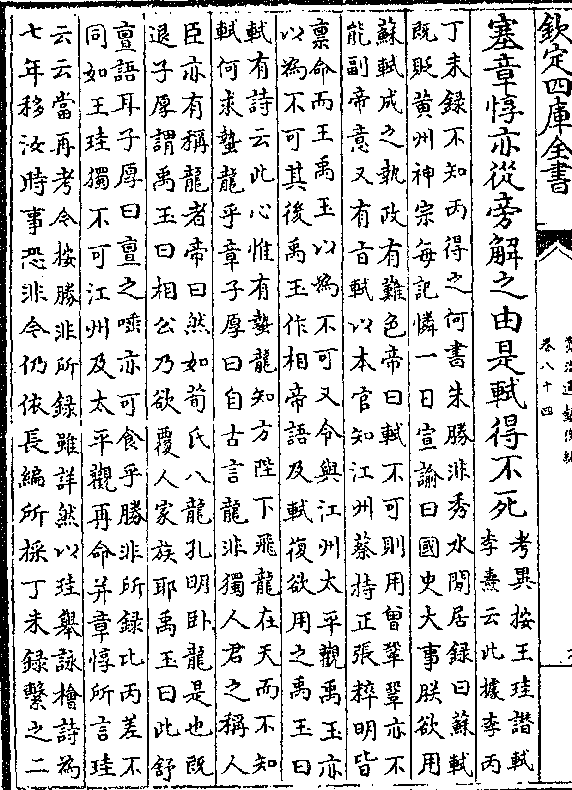 欽定四庫全書
資治通鑑後編
卷八十四
塞章惇亦從旁解之由是軾得不死
考異按王珪譖軾
李燾云此據李丙
丁未録不知丙得之何書朱勝非秀水閒居録曰蘇軾
既貶黄州神宗每記憐一日宣諭曰國史大事朕欲用
蘇軾成之執政有難色帝曰軾不可則用曾鞏鞏亦不
能副帝意又有旨軾以本官知江州蔡持正張粹明皆
禀命而王禹玉以為不可又令與江州太平觀禹玉亦
以為不可其後禹玉作相帝語及軾復欲用之禹玉曰
軾有詩云此心惟有蟄龍知方陛下飛龍在天而不知
軾何求蟄龍乎章子厚曰自古言龍非獨人君之稱人
臣亦有稱龍者帝曰然如荀氏八龍孔明卧龍是也既
退子厚謂禹玉曰相公乃欲覆人家族耶禹玉曰此舒
亶語耳子厚曰亶之唾亦可食乎勝非所録比丙差不
同如王珪獨不可江州及太平觀再命并章惇所言珪
云云當再考今按勝非所録雖詳然以珪舉詠檜詩為
七年移汝時事恐非今仍依長編所採丁未録繫之二